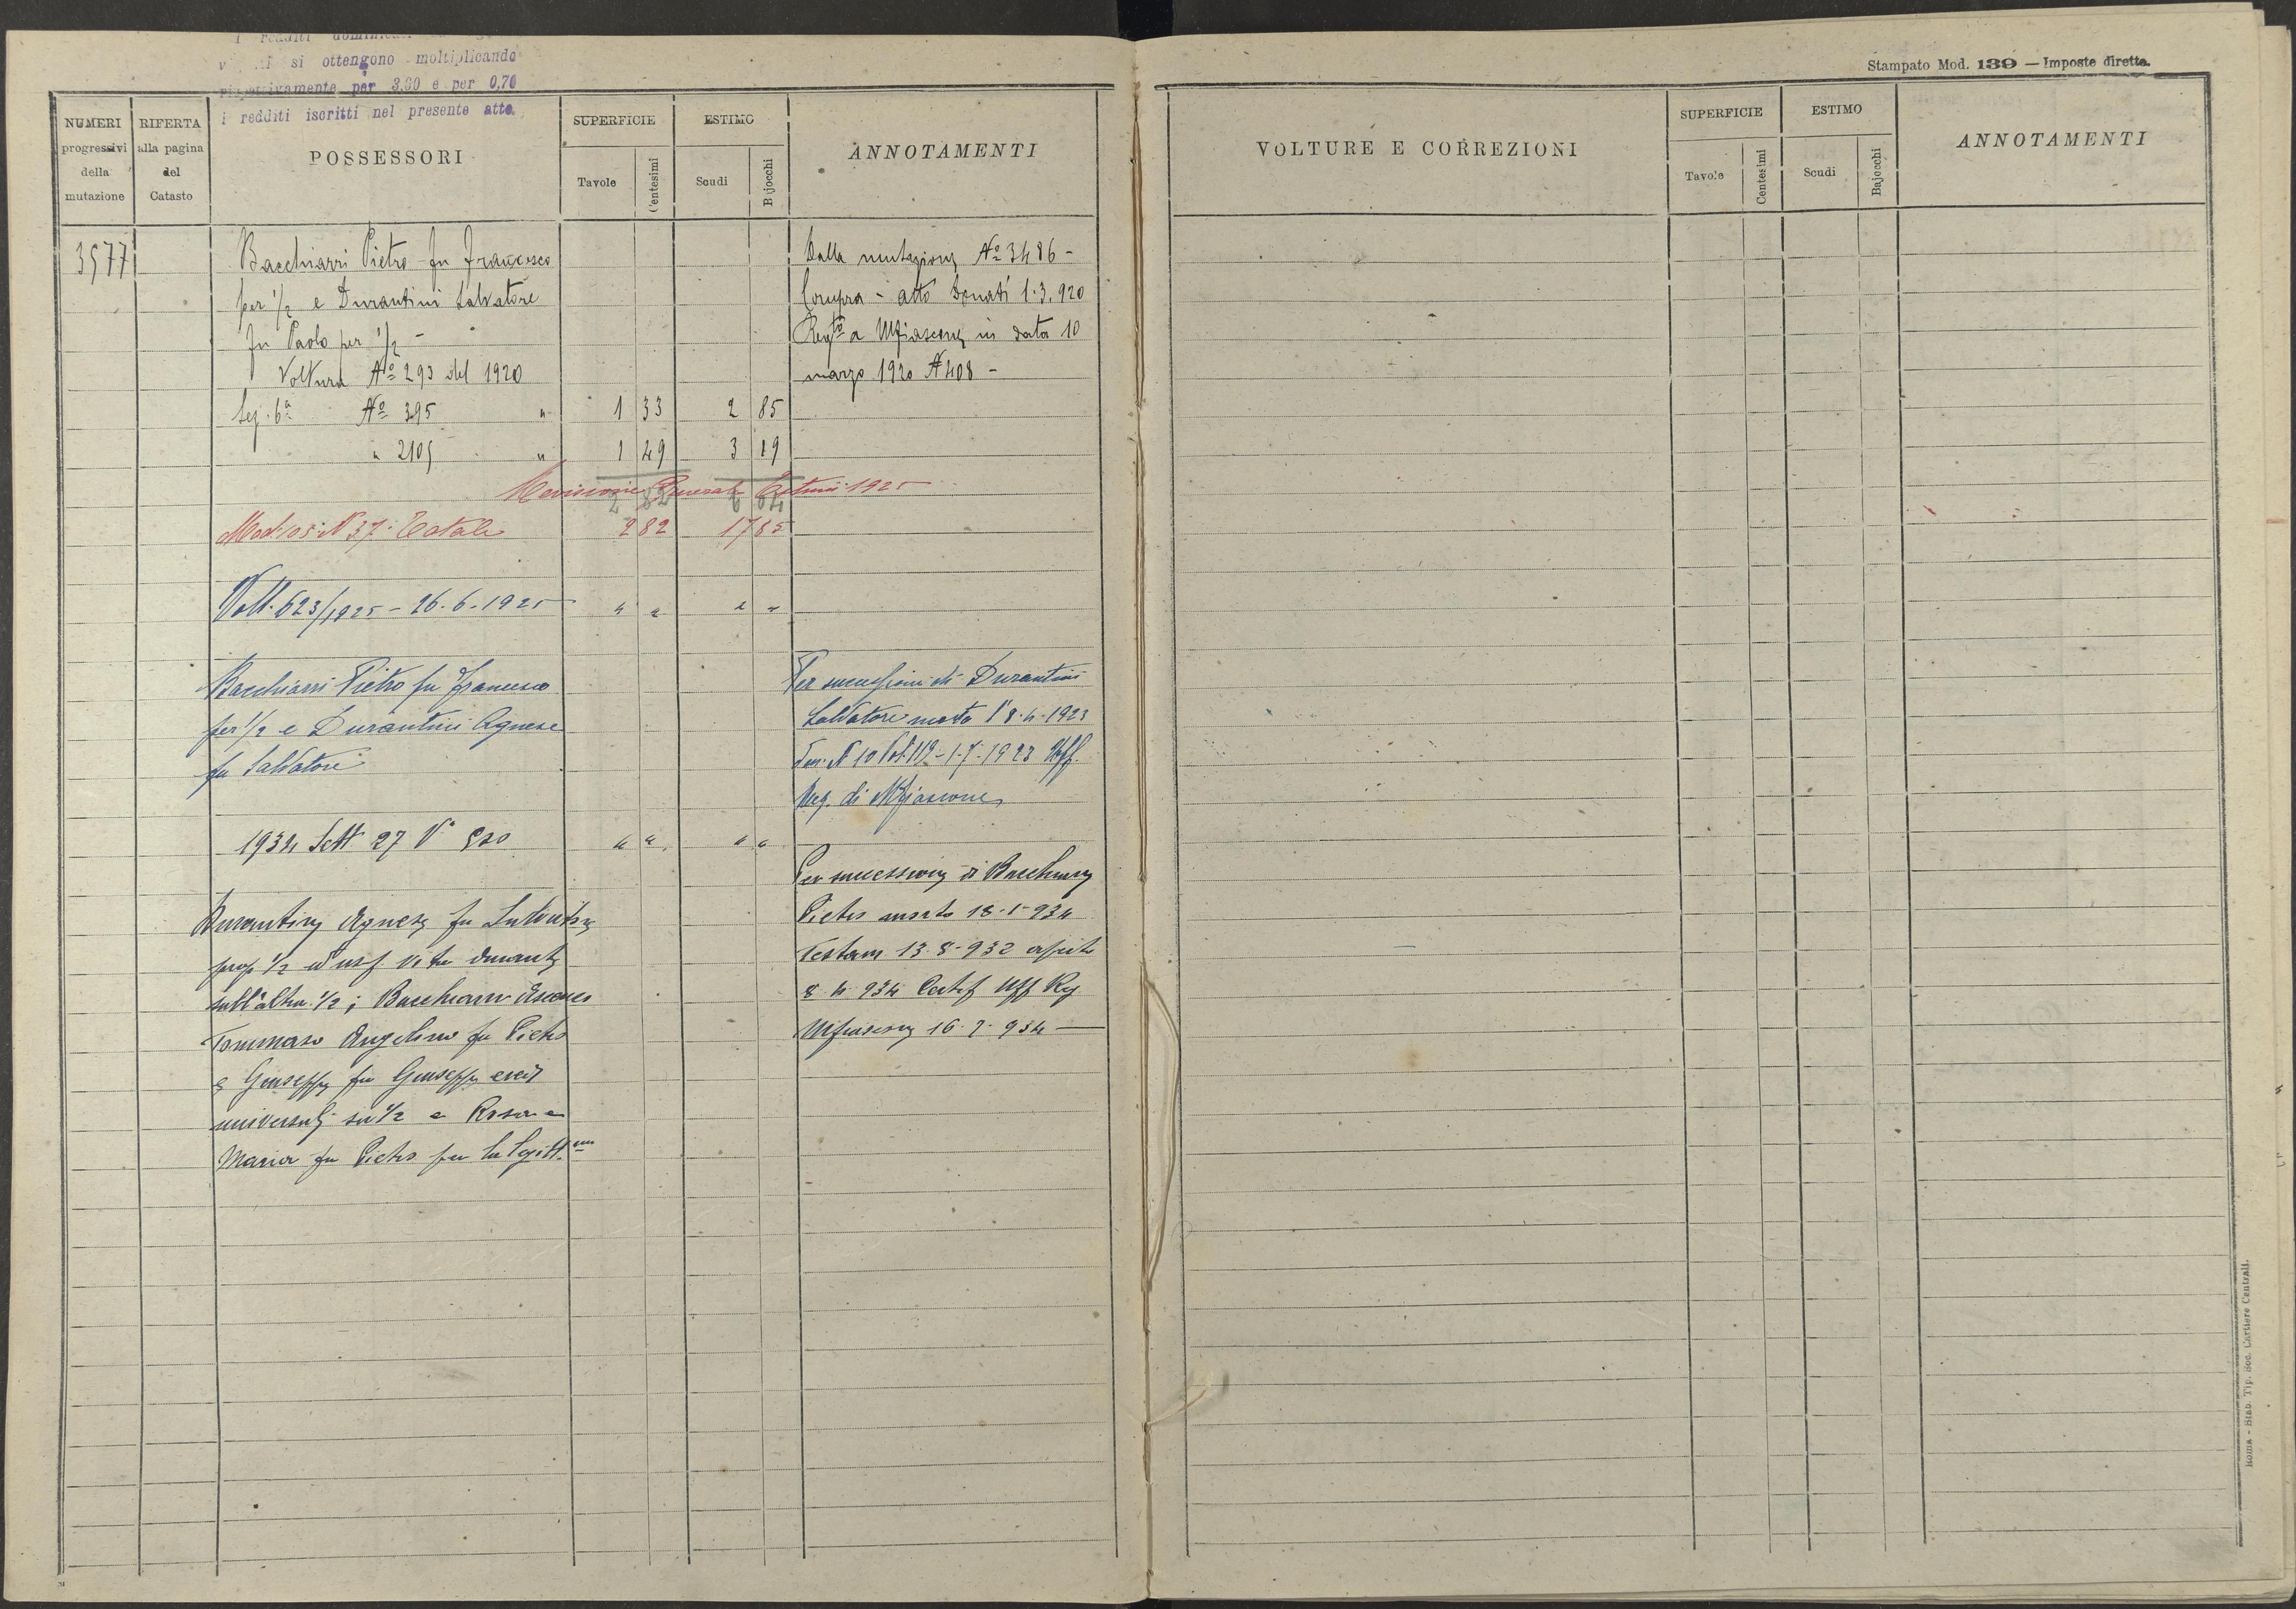 si ottengono moltiplicando
per 3,60 e per 0,70
i redditi iscritti nel presente atto.
Stampato Mod. 139 — Imposte dirette.
NUMERI progressivi della mutazione
RIFERTA alla pagina del Catasto
POSSESSORI
SUPERFICIE
Tavole
Centesimi
ESTIMO
Scudi
Bajocchi
ANNOTAMENTI
3577
Bacchiarri Pietro fu Francesco
per 1/2 e Durantini Salvatore
fu Paolo per 1/2 -
Voltura No 293 del 1920
Sez. 6a No 395 " 1 33 2 85
" 2105 " 1 49 3 19
2 82 6 04
Revisione Generale Estimi 1925
Mod. 105 N 37 Totale 2 82 17 85
Volt. 623/1925 - 26.6.1925 " " " "
Bacchiarri Pietro fu Francesco
per 1/2 e Durantini Agnese
fu Salvatore
1934 Sett 27 V° 520 " " " "
Durantini Agnese fu Salvatore
prop 1/2 ed usf vita durante
sull'altra 1/2; Bacchiarri
Tommaso Angelino fu Pietro
e Giuseppe fu Giuseppe eredi
universali su 1/2 e Rosa e
Maria fu Pietro per la legitt.ma
Dalla mutazione No 3486 -
Compra - atto Donati 1.3.920
Regto a Mfiascone in data 10
marzo 1920 N 408 -
Per successione di Durantini
Salvatore morto l'8.4.1923
N 10 Vol. 112 - 1.7.1923 Uff.
Reg. di Mfiascone
Per successione di Bacchiarri
Pietro morto 18-1-934
Testam 13.8.932
8 4 934 Certif Uff Reg
Mfiascone 16.7.934 —
VOLTURE E CORREZIONI
SUPERFICIE
Tavole
Centesimi
ESTIMO
Scudi
Bajocchi
ANNOTAMENTI
Roma - Stab. Tip. Soc. Cartiere Centrali.